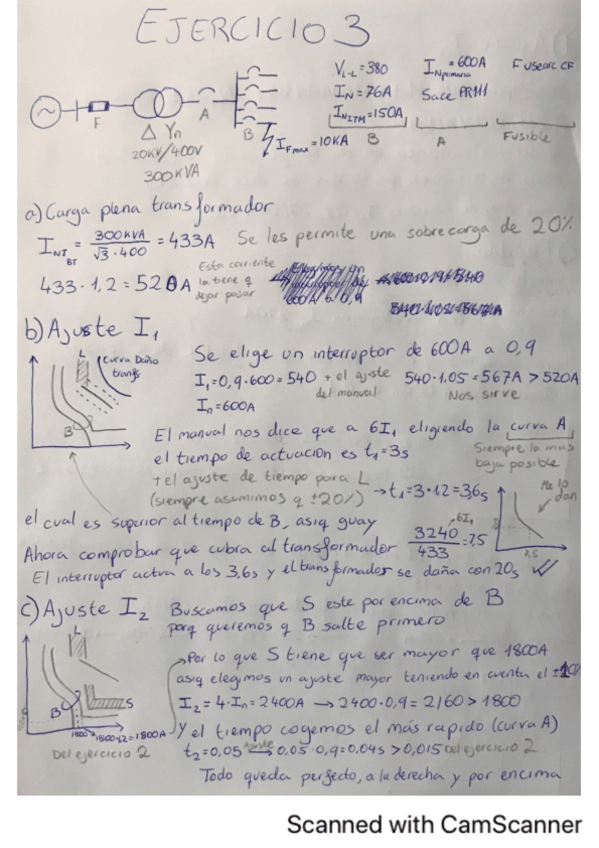 EJERCICIO 3
V L-L = 380
I N = 76A
I N ITM = 150A
B
I Nprimaria = 600A
Sace PR111
A
Fusearc CF
Fusible
F
A
B
Δ Yn
20KV/400V
300KVA
I Fmax = 10KA
a) Carga plena transformador
I NT BT = 300KVA / √3·400 = 433A Se les permite una sobrecarga de 20%
433·1,2 = 520A Esta corriente la tiene q dejar pasar
b) Ajuste I1
L
Curva Daño transf
B
Se elige un interruptor de 600A a 0,9
I1 = 0,9·600 = 540 + el ajuste del manual 540·1.05 = 567A > 520A
Nos sirve
In = 600A
El manual nos dice que a 6I1 eligiendo la curva A
el tiempo de actuacion es t1 = 3s
Siempre la mas baja posible
+ el ajuste de tiempo para L
(siempre asumimos q ±20%) → t1 = 3·12 = 3,6s
Me lo dan
el cual es superior al tiempo de B, asiq guay
Ahora comprobar que cubra al transformador 3240 / 433 = 7.5
6I1
7.5
El interruptor activa a los 3,6s y el transformador se daña con 20s ✓
c) Ajuste I2 Buscamos que S este por encima de B
porq queremos q B salte primero
L
S
B
1500
1500·1.2 = 1800A
Del ejercicio 2
Por lo que S tiene que ser mayor que 1800A
asiq elegimos un ajuste mayor teniendo en cuenta el ±10%
I2 = 4·In = 2400A → 2400·0,9 = 2160 > 1800
Y el tiempo cogemos el más rapido (curva A)
t2 = 0,05 Ajuste → 0,05·0,9 = 0.04s > 0,015 Del ejercicio 2
Todo queda perfecto, a la derecha y por encima
Scanned with CamScanner